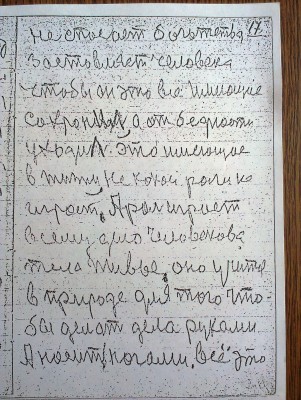 17
не стоест богатства
заставляет человека
чтобы он это все имющие
сохронил а от бедности
уходил. Это имеющое
в жизни не какой роли не
играет. А рол играет
всему дело человекова
тела живое, оно у
в природе для того что-
бы делат дела руками
А ногами. все это